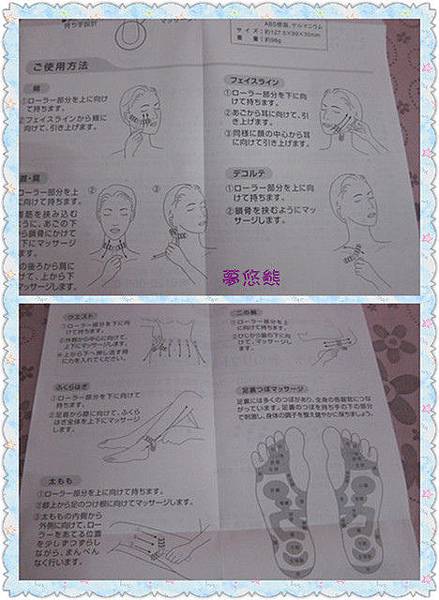 持ち手設計
ABS樹脂、ゲルマニウム
サイズ：約127.5×99×35mm
重 量：約98g
ご使用方法
頬
①ローラー部分を上に向け
て持ちます。
②フェイスラインから頬に
向けて、引き上げます。
フェイスライン
①ローラー部分を下に向
けて持ちます。
②あごから耳に向けて、引
き上げます。
③同様に顔の中心から耳
に向けて引き上げます。
首・肩
ローラー部分を上
に向けて持ちます。
筋を挟み込む
ように、あごの下
から鎖骨にかけて
下にマッサージ
ます。
の後ろから肩に
けて、上から下
マッサージします。
②
③
デコルテ
①ローラー部分を下に向
けて持ちます。
②鎖骨を挟むようにマッ
サージします。
夢悠熊
ウエスト
①ローラー部分を下に向
けて、持ちます。
②外側から中心に向けて、
上下にマッサージします。
※上から下へ押し流す時
に力を入れてください。
二の腕
①ローラー部分を上に
向けて持ちます。
②ひじから脇の下に向
けて、マッサージしま
す。
ふくらはぎ
①ローラー部分を下に向け
て持ちます。
②足首から膝に向けて、ふくら
はぎ全体を上下にマッサージし
ます。
足裏つぼマッサージ
足裏には多くのつぼがあり、全身の各器官につな
がっています。足裏のつぼを持ち手の下の部分
で刺激し、身体の調子を整え健やかに保ちましょう。
太もも
①ローラー部分を上に向けて持ちます。
②膝上から足のつけ根に向けてマッサージします。
③太ももの内側から
外側に向けて、ロー
ラーをあてる位置
を少しずつずらし
ながら、まんべん
なく行います。